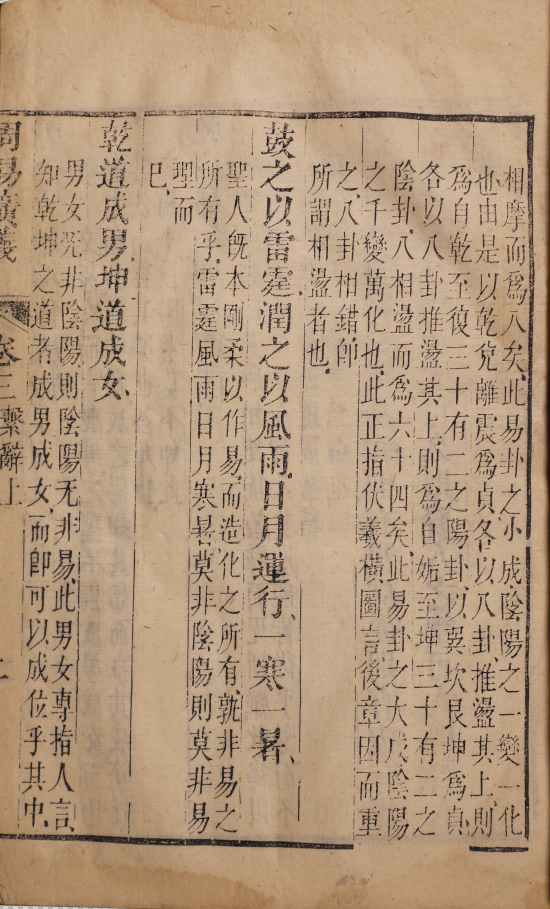 相摩而爲八矣此易卦之小成陰陽之一變一化
也由是以乾兌離震爲貞各以八卦推盪其上則
爲自乾至復三十有二之陽卦以巽坎艮坤爲貞
各以八卦推盪其上則爲自姤至坤三十有二之
陰卦八相盪而爲六十四矣此易卦之大成陰陽
之千變萬化也此正指伏羲橫圖言後章因而重
之八卦相錯卽
所謂相盪者也
鼓之以雷霆潤之以風雨日月運行一寒一暑
聖人旣本剛柔以作易而造化之所有孰非易之
所有乎雷霆風雨日月寒暑莫非陰陽則莫非易
理而
巳
乾道成男坤道成女
男女无非陰陽則陰陽无非易此男女專指人言
知乾坤之道者成男成女而卽可以成位乎其中
周易廣義 卷三繫辭上 二